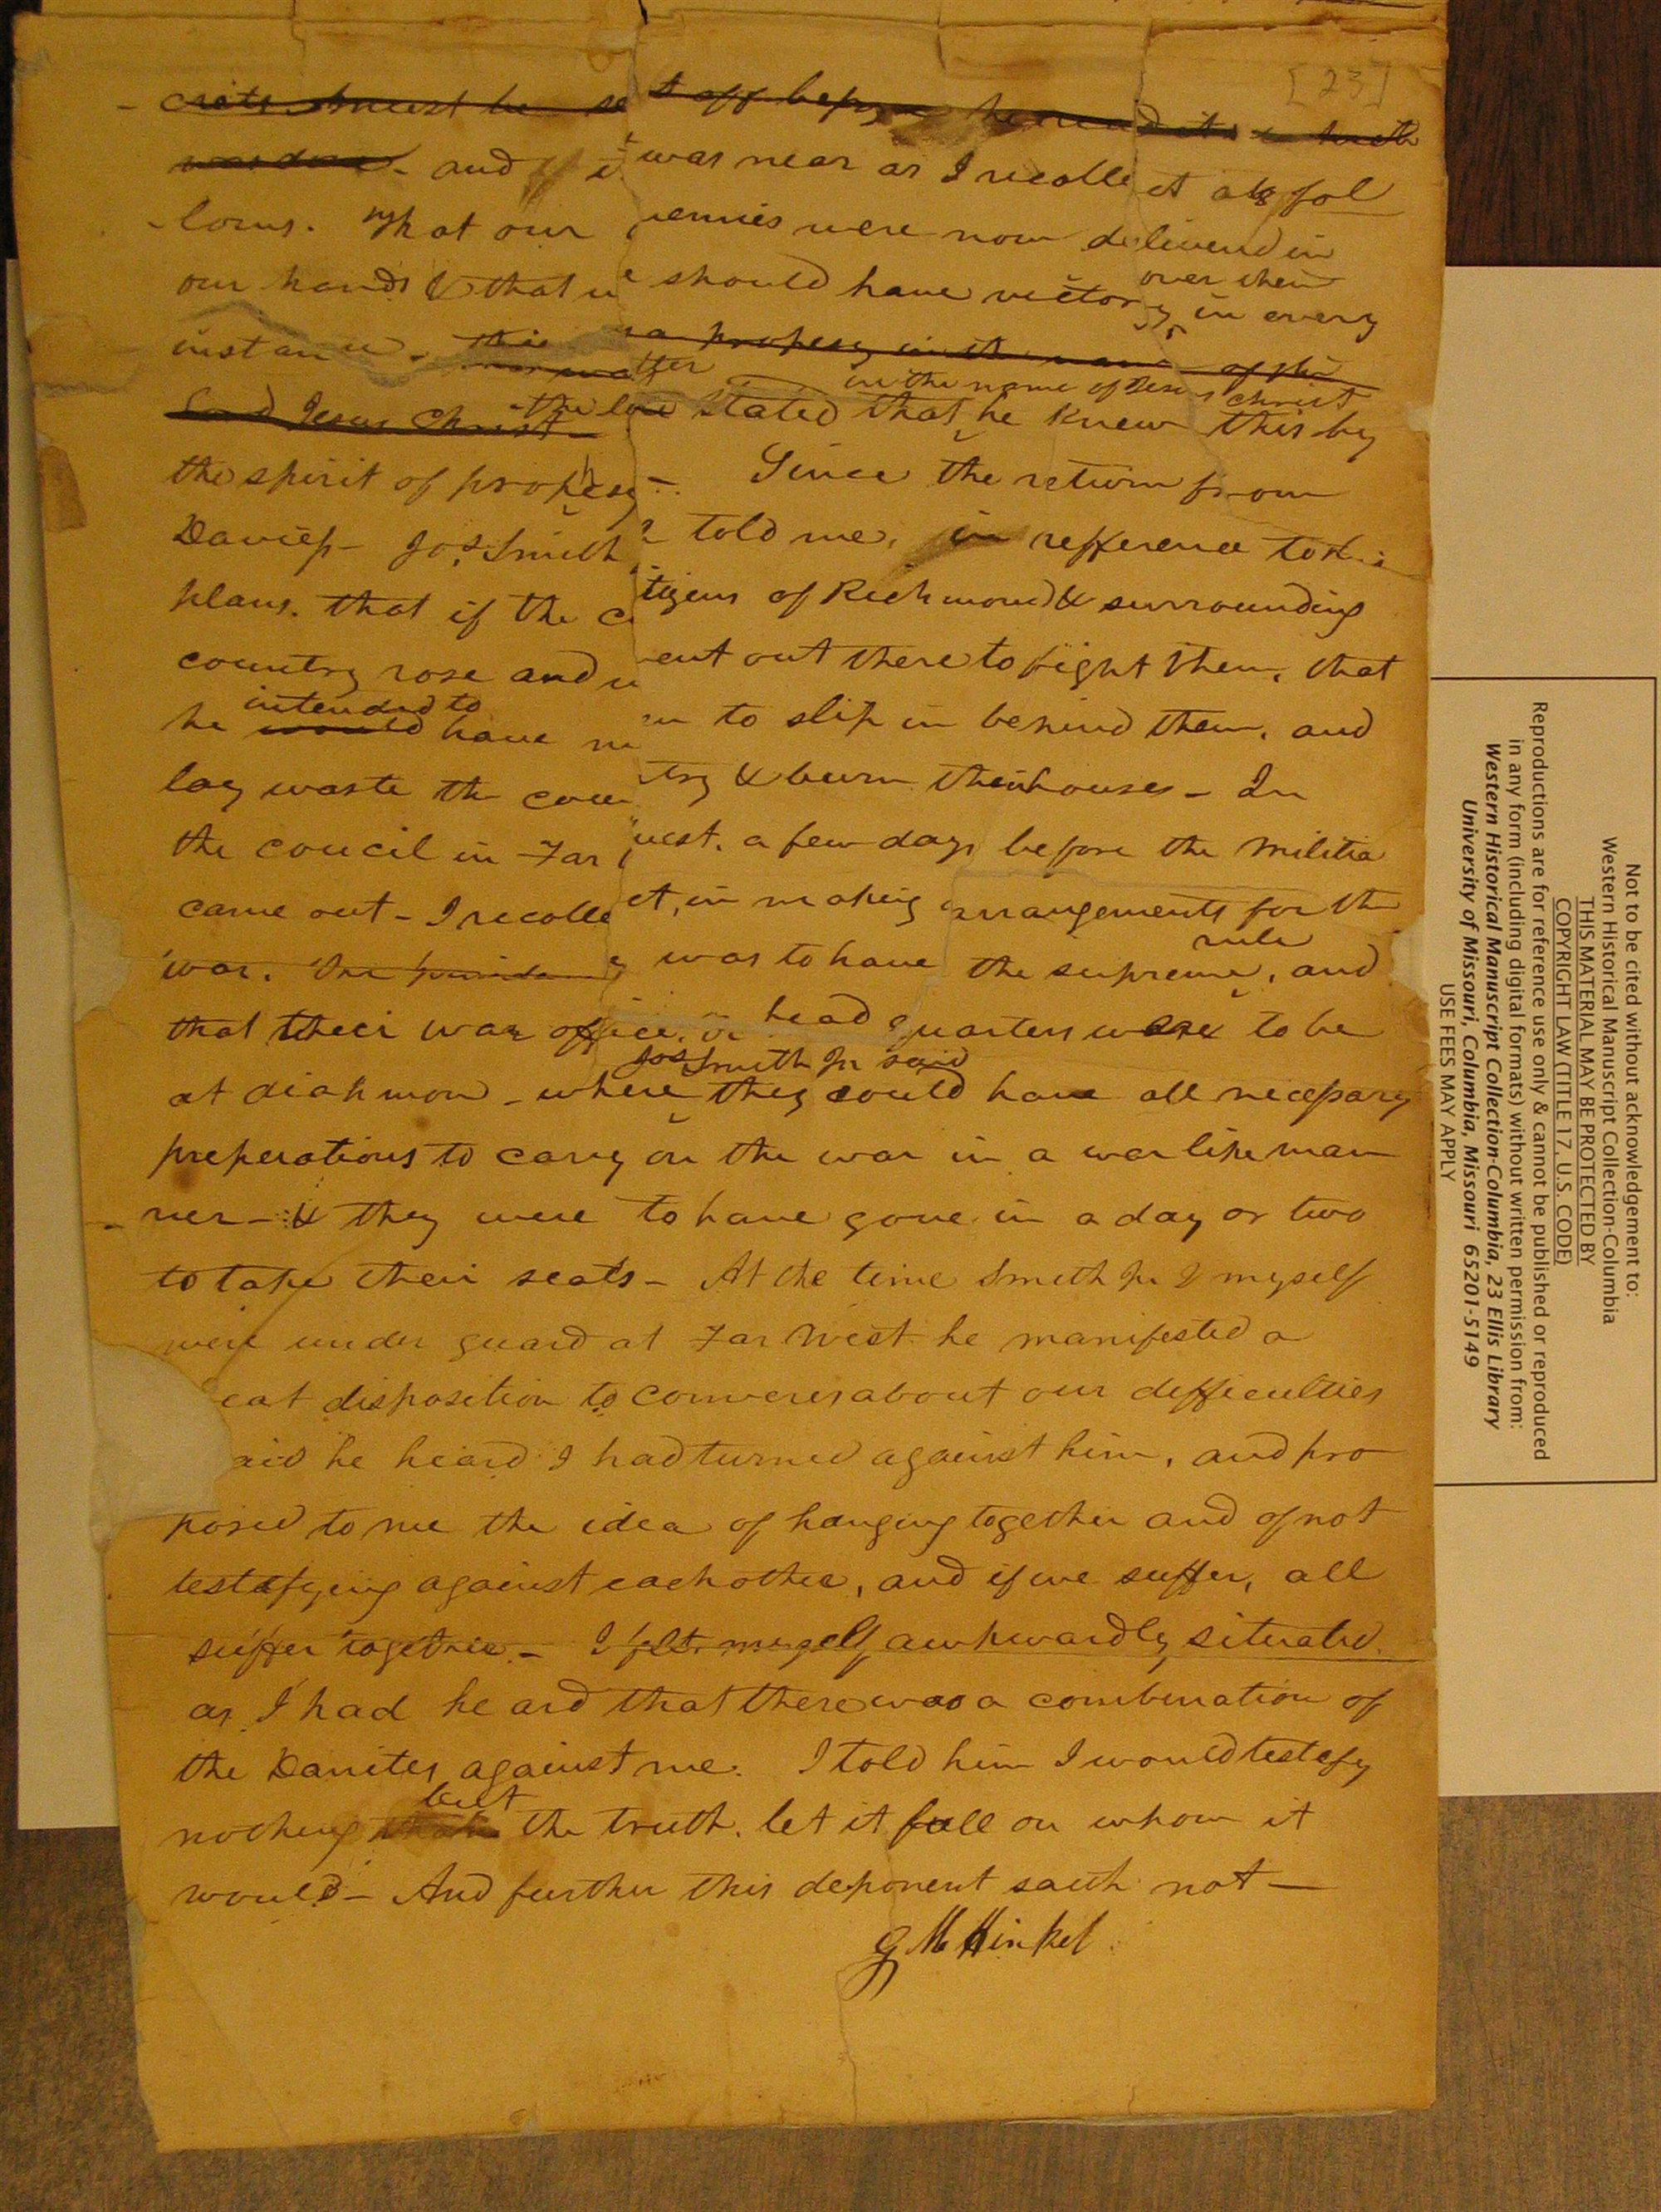 [23]
- crits must be set off before he read it to
and if it was near as I recollect as fol
- lows. That our enemies were now delivered in
over them
our hands & that we should have victory in every
instance. this was a prophesy in the name of the
in the name of Jesus Christ
Lord Jesus Christ - the lose stated that he knew this by
the spirit of prophesy -. Since the return from
Daviess - Jos. Smith Jr told me, in refference to his
plans. that if the citizens of Richmond & surrounding
country rose and went out there to fight them, that
intended to
he would have men to slip in behind them, and
lay waste the country & burn their houses - In
the councel in Far West. a few days before the militia
came out - I recollect, in making arrangements for the
rule
war. the presidency was to have the supreme, and
that their war office, or head quarters were to be
Jos Smith Jr said
at diahmon - where they could have all necessary
preperations to carry on the war in a warlike man
- ner - & they were to have gone in a day or two
to take their seats - At the time Smith Jr & myself
were under guard at Far West he manifested a
eat disposition to converes about our difficulties
aid he heard I had turned against him, and pro
posed to me the idea of hanging together and of not
testefying against each other, and if we suffer, all
suffer together. - I felt myself awkwardly situated.
as I had heard that there was a combination of
the Danites against me. I told him I would testefy
but
nothing than the truth. let it fall on whom it
would - And further this deponent saith not -
G M Hinkel
Not to be cited without acknowledgement to:
Western Historical Manuscript Collection-Columbia
THIS MATERIAL MAY BE PROTECTED BY
COPYRIGHT LAW (TITLE 17, U.S. CODE)
Reproductions are for reference use only & cannot be published or reproduced
in any form (including digital formats) without written permission from:
Western Historical Manuscript Collection-Columbia, 23 Ellis Library
University of Missouri, Columbia, Missouri 65201-5149
USE FEES MAY APPLY